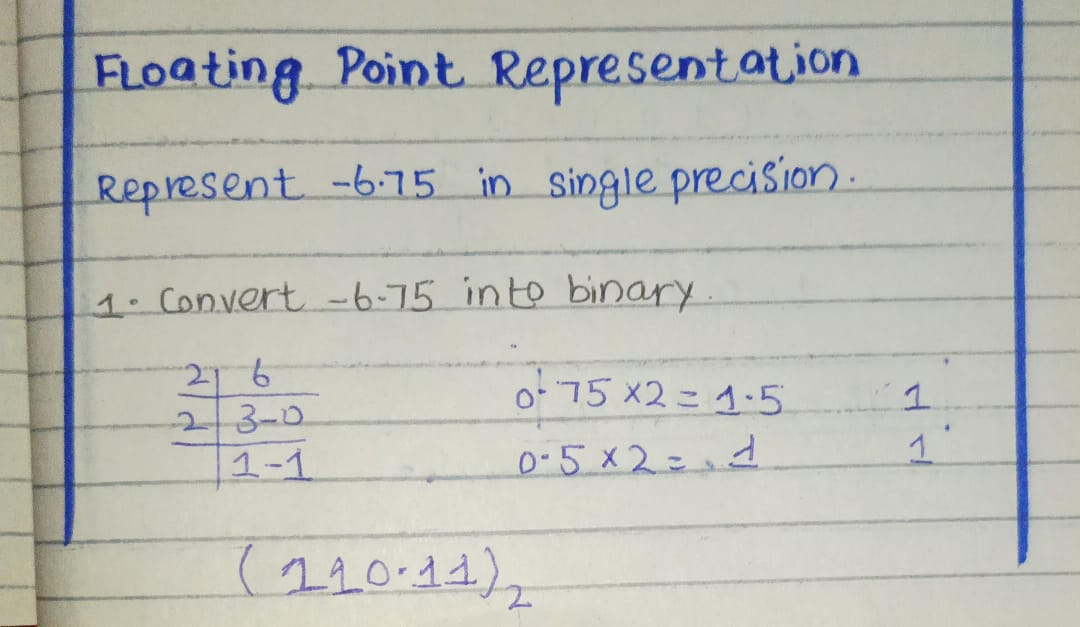 Floating Point Representation
Represent -6.75 in single precision.
1. Convert -6.75 into binary.
2 6
2 3-0
1-1
0.75 x2 = 1.5 1
0.5 x 2 = .1 1
(110.11)2